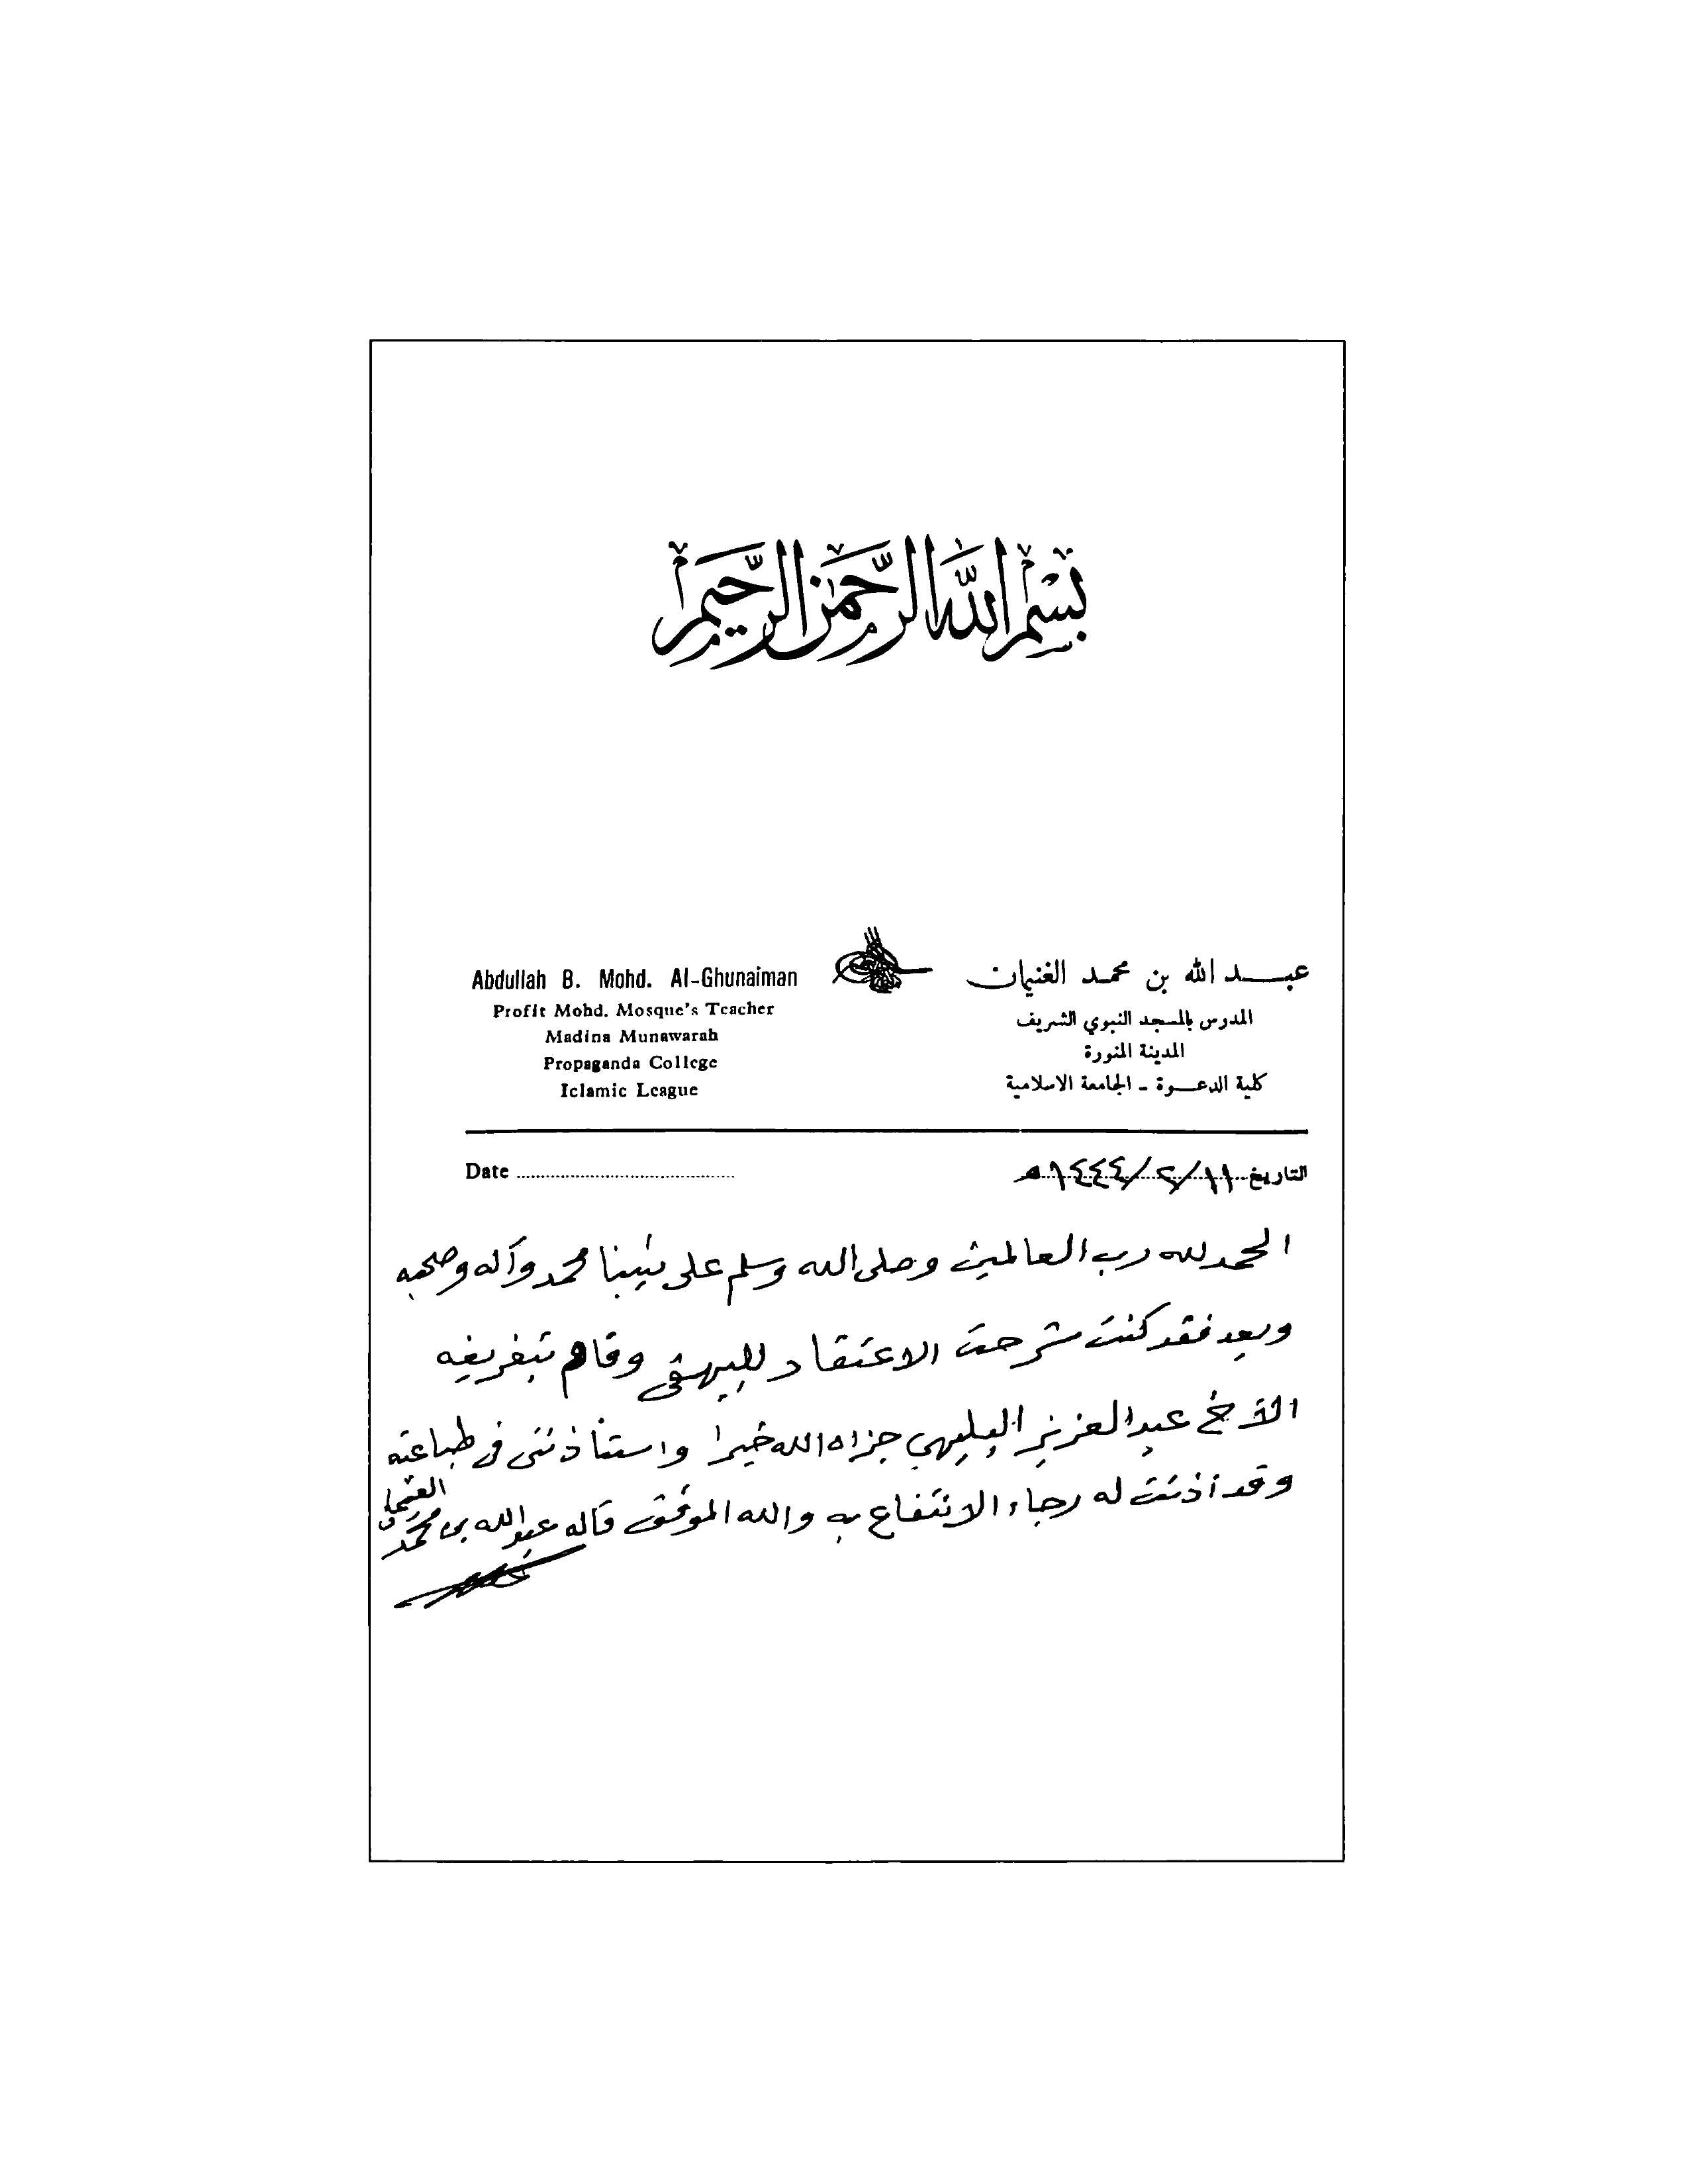 بسم الله الرحمن الرحيم
عبد الله بن محمد الغنيمان
المدرس بالمسجد النبوي الشريف
المدينة المنورة
كلية الدعوة - الجامعة الاسلامية
Abdullah B. Mohd. Al-Ghunaiman
Profit Mohd. Mosque's Teacher
Madina Munawarah
Propaganda College
Iclamic League
التاريخ ١١/٢/١٤٤٤هـ
Date
الحمد لله رب العالمين وصلى الله وسلم على نبينا محمد وآله وصحبه
وبعد فقد كنت شرحت الاعتقاد للبيهقي وقام بتفريغه
الأخ عبد العزيز البليهي جزاه الله خيرا واستأذنني في طباعته
وقد أذنت له رجاء الانتفاع به والله الموفق قاله عبد الله بن محمد الغنيمان